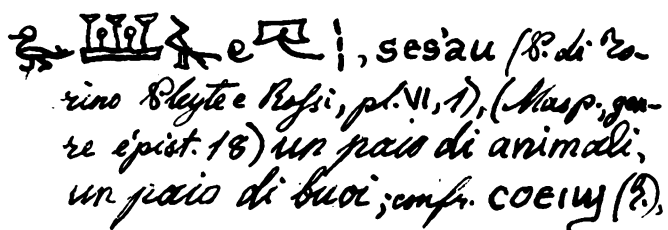 , ses'au (P. di To-
rino Pleyte e Rossi, pl. VI, 1), (Masp., gen-
re épist. 18) un paio di animali,
un paio di buoi; confr. ⲥⲟⲉⲓϣ (?),